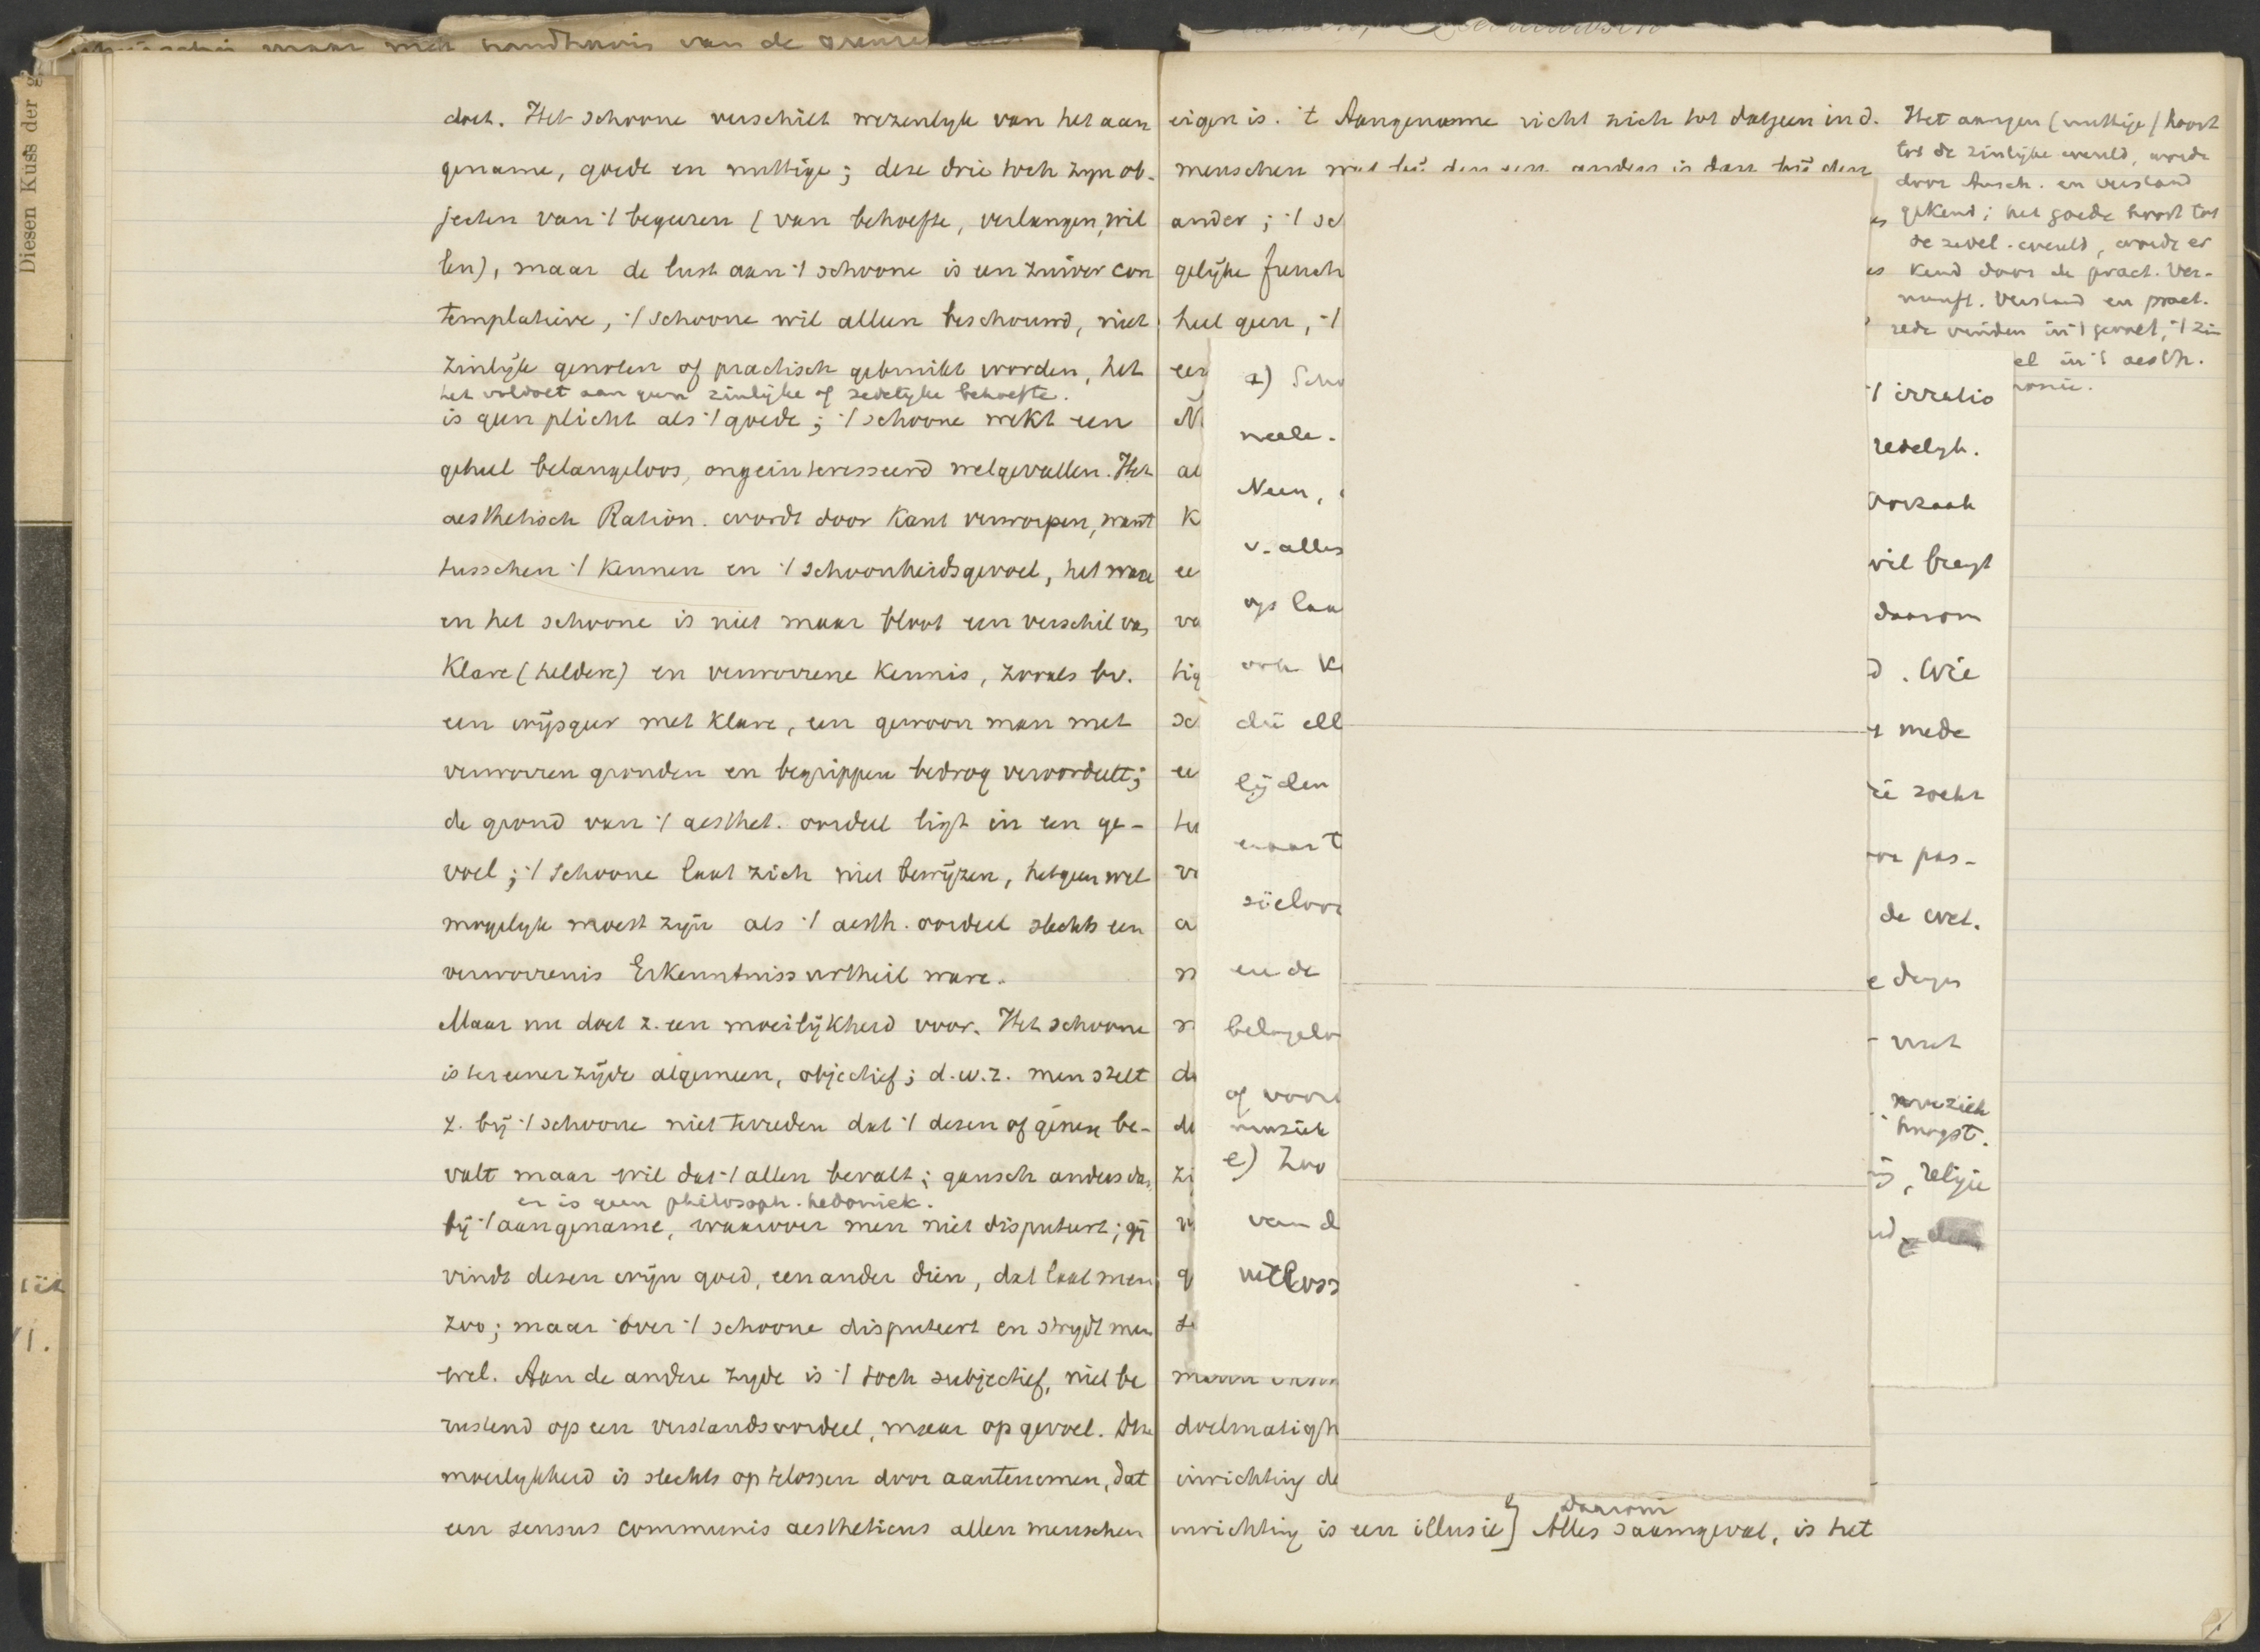 Diesen Kuss der g
maar met handhavin van de grenzen
doet. Het schoone verschilt wezenlyk van het aan
gename, goede en nuttige; deze drie toch zyn ob-
jecten van 't begeeren (van behoefte, verlangen, wil
len), maar de lust aan 't schoone is een zuiver con
templatieve, 't schoone wil alleen beschouwd, niet
zinlijk genoten of practisch gebruikt worden, het
het voldoet aan geen zinlijke of zedelijke behoefte.
is geen plicht als 't goede; 't schoone wekt een
geheel belangeloos, ongeinteresseerd welgevallen. Het
aesthetisch Ration. wordt door Kant verworpen, want
tusschen 't kennen en 't schoonheidsgevoel, het ware
en het schoone is niet maar bloot een verschil van
klare (heldere) en verworrene kennis, zooals bv.
een wijsgeer met klare, een gewoon man met
verworren gronden en begrippen bedrog veroordeelt;
de grond van 't aesthet. oordeel ligt in een ge-
voel; 't schoone laat zich niet bewijzen, hetgeen wel
mogelyk moest zijn als 't aesth. oordeel slechts een
verworrenis Erkenntnissurtheil ware.
Maar nu doet z. een moeilijkheid voor. Het schoone
is ter eener zijde algemeen, objectief; d.w.z. men stelt
z. bij 't schoone niet tevreden dat 't dezen of genen be-
valt maar wil dat 't allen bevalt; gansch anders dan
er is geen philosoph. hedoniek.
bij 't aangename, waarover men niet disputeert; gij
vindt dezen wijn goed, een ander dien, dat laat men
zoo; maar over 't schoone disputeert en strydt men
wel. Aan de andere zyde is 't toch subjectief, niet be
rustend op een verstandsoordeel, maar op gevoel. Die
moeilykheid is slechts op telossen door aantenemen, dat
een sensus communis aestheticus allen menschen
eigen is. 't Aangename richt zich tot datgeen in d.
menschen wat bij den een anders is dan bij den
ander; 't sc
gelijke funch
heel geen, 't
a) Scho
neele.
Neen,
v. alles
op laa
ook K
die ell
lijden
waart
zieloo
en de
belangelo
of voor
muziek
e) Zoo
van d
uitloss
doelmatigh
inrichting de
inrichting is een illusie] Alles saamgevat, is het
daarom
Het aangen (nuttige) hoort
tot de zinlijke wereld, wordt
door Ansch. en verstand
gekend; het goede hoort tot
de zedel. wereld, wordt er
kend door de pract. Ver-
nunft. Verstand en pract.
rede vinden in 't gevoel, 't zin
el in 't aesth.
monie.
't irratio
redelyk.
oorzaak
wil breyt
daarom
d. Wie
mede
ie zoekt
oor pas-
de wet.
e dagen
niet
muziek
hoogst.
religie